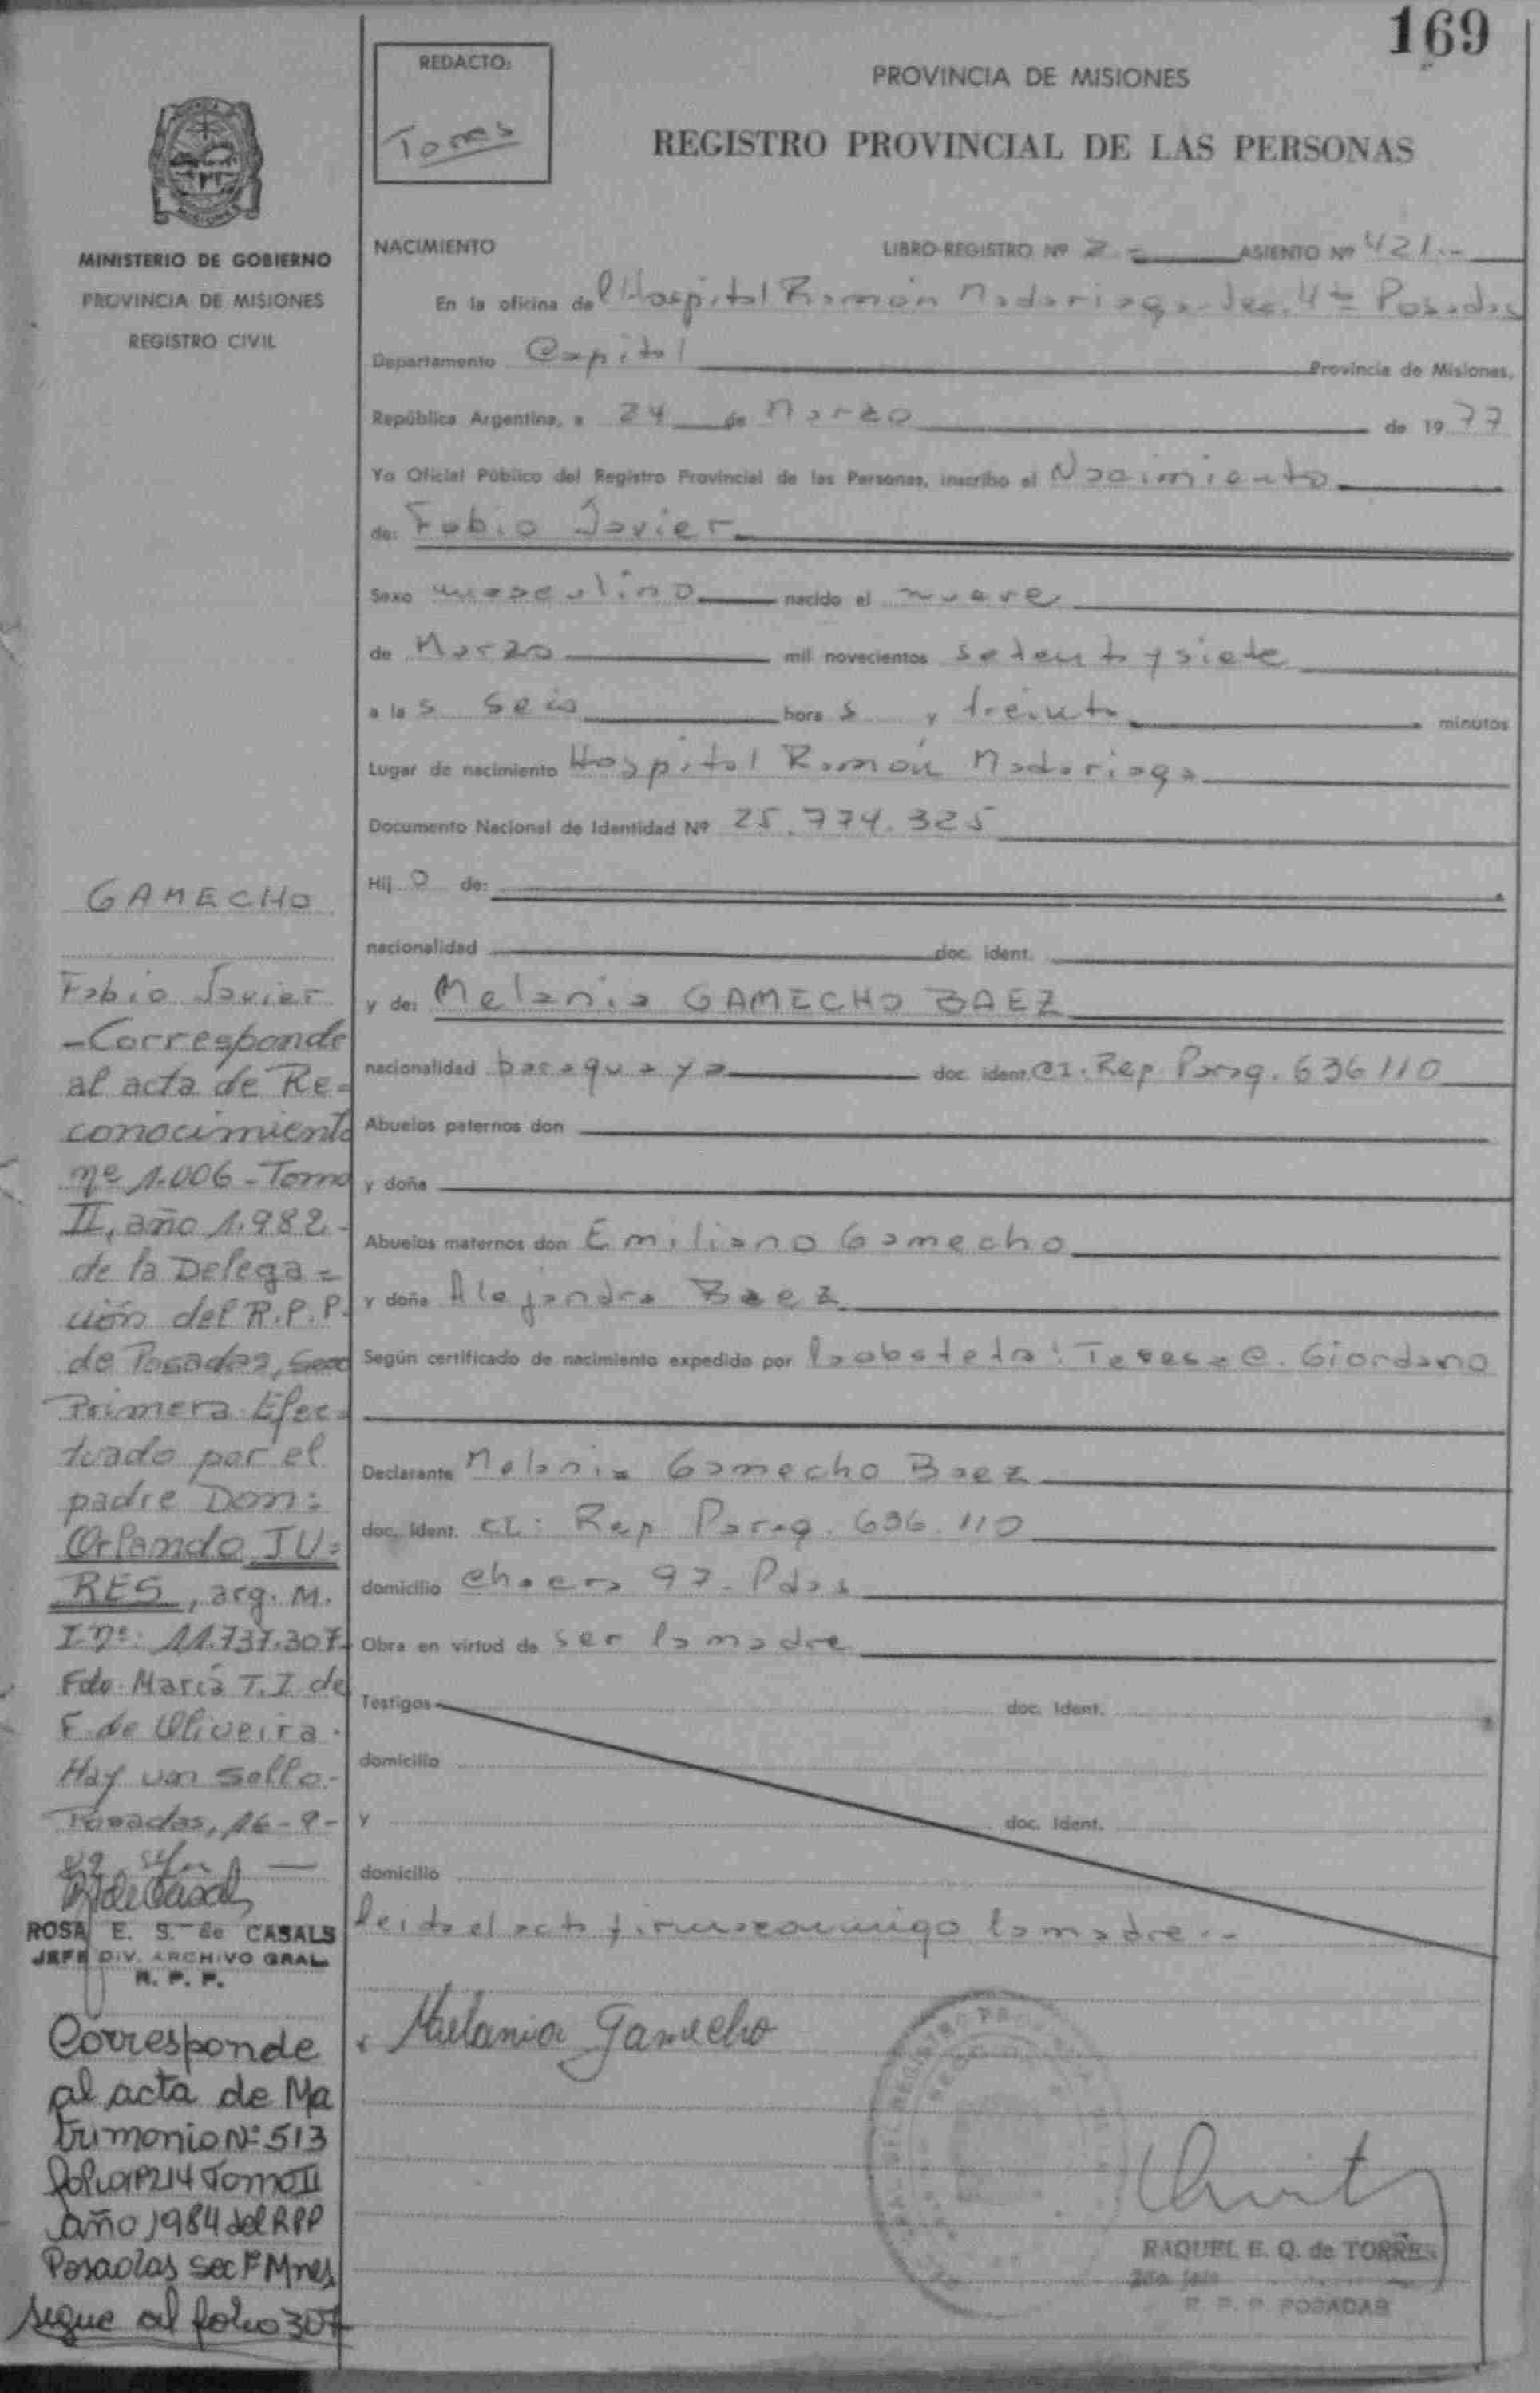 169
REDACTO:
Torres
PROVINCIA DE MISIONES
REGISTRO PROVINCIAL DE LAS PERSONAS
MINISTERIO DE GOBIERNO
PROVINCIA DE MISIONES
REGISTRO CIVIL
NACIMIENTO LIBRO-REGISTRO Nº 2 - ASIENTO Nº 421.-
En la oficina del Hospital Ramón Madariaga - Sec. 4ta Posadas
Departamento Capital Provincia de Misiones,
República Argentina, a 24 de Marzo de 1977
Yo Oficial Público del Registro Provincial de las Personas, inscribo el Nacimiento
de: Fabio Javier
Sexo masculino nacido el nueve
de Marzo mil novecientos setenta y siete
a las seis horas y treinta minutos
Lugar de nacimiento Hospital Ramón Madariaga
Documento Nacional de Identidad Nº 25.774.325
Hijo de:
nacionalidad doc. ident.
y de: Melania GAMECHO BAEZ
nacionalidad paraguaya doc. ident. CI. Rep. Parag. 636 110
Abuelos paternos don
y doña
Abuelos maternos don Emiliano Gamecho
y doña Alejandra Baez
Según certificado de nacimiento expedido por la obstetra: Teresa C. Giordano
Declarante Melania Gamecho Baez
doc. ident. CI: Rep. Parag. 636.110
domicilio chacra 97 - Pdas
Obra en virtud de ser la madre
Testigos doc. Ident.
domicilio
y doc. Ident.
domicilio
leida el acta firma conmigo la madre.-
Melania Gamecho
RAQUEL E. Q. de TORRES
2do. Jefe
R. P. P. POSADAS
GAMECHO
Fabio Javier
- Corresponde
al acta de Re=
conocimiento
nº 1.006 - Tomo
II, año 1.982 -
de la Delega=
ción del R.P.P.
de Posadas, Secc
Primera Efec=
tuado por el
padre Don:
Orlando JU=
RES, arg. M.
I. nº: 11.737.307
Fdo. María T. I. de
F. de Oliveira.
Hay un sello -
Posadas, 16-9-
82
ROSA E. S. de CASALS
JEFE DIV. ARCHIVO GRAL.
R. P. P.
Corresponde
al acta de Ma
trimonio Nº 513
folio 214 Tomo II
año 1984 del RPP
Posadas Sec 1ª Mnes
sigue al folio 307